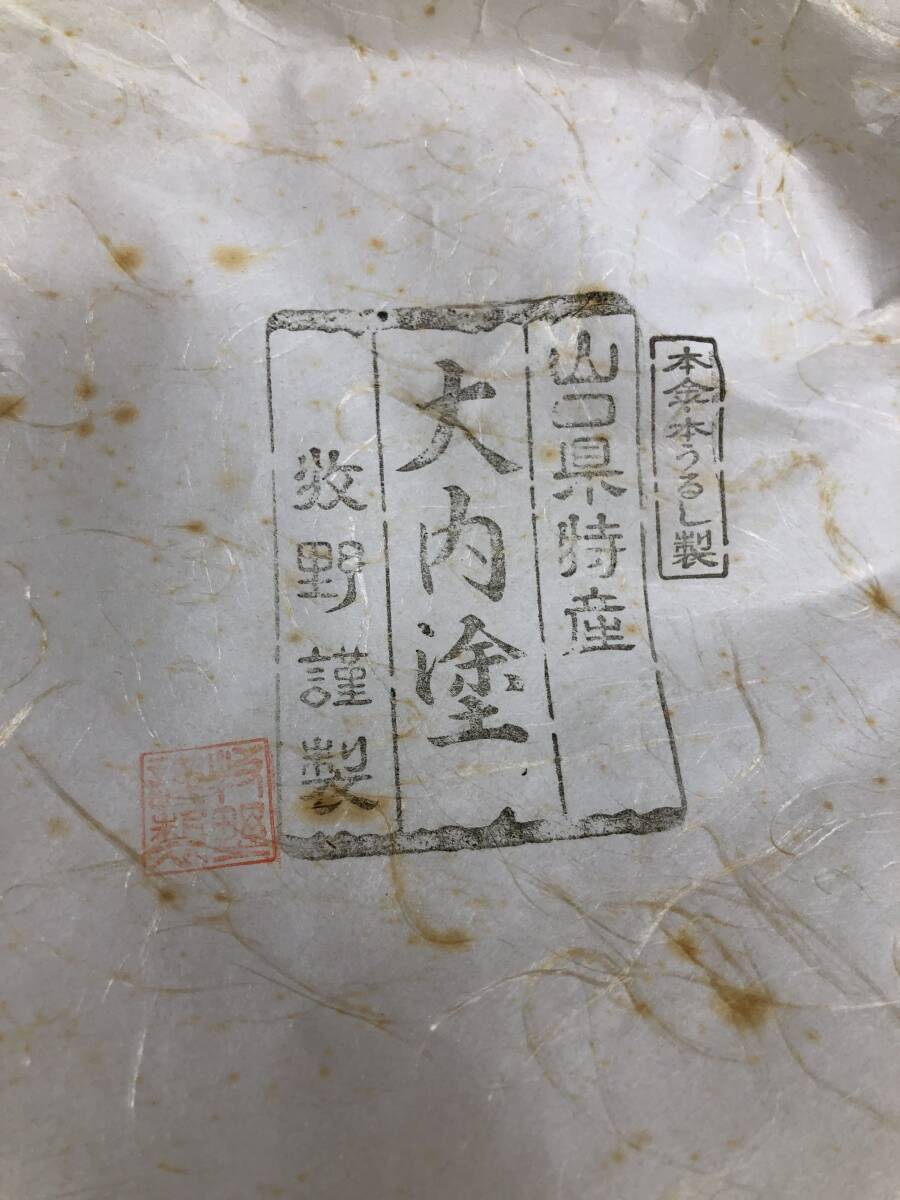 本金・本うるし製
山口県特産
大内塗
牧野謹製